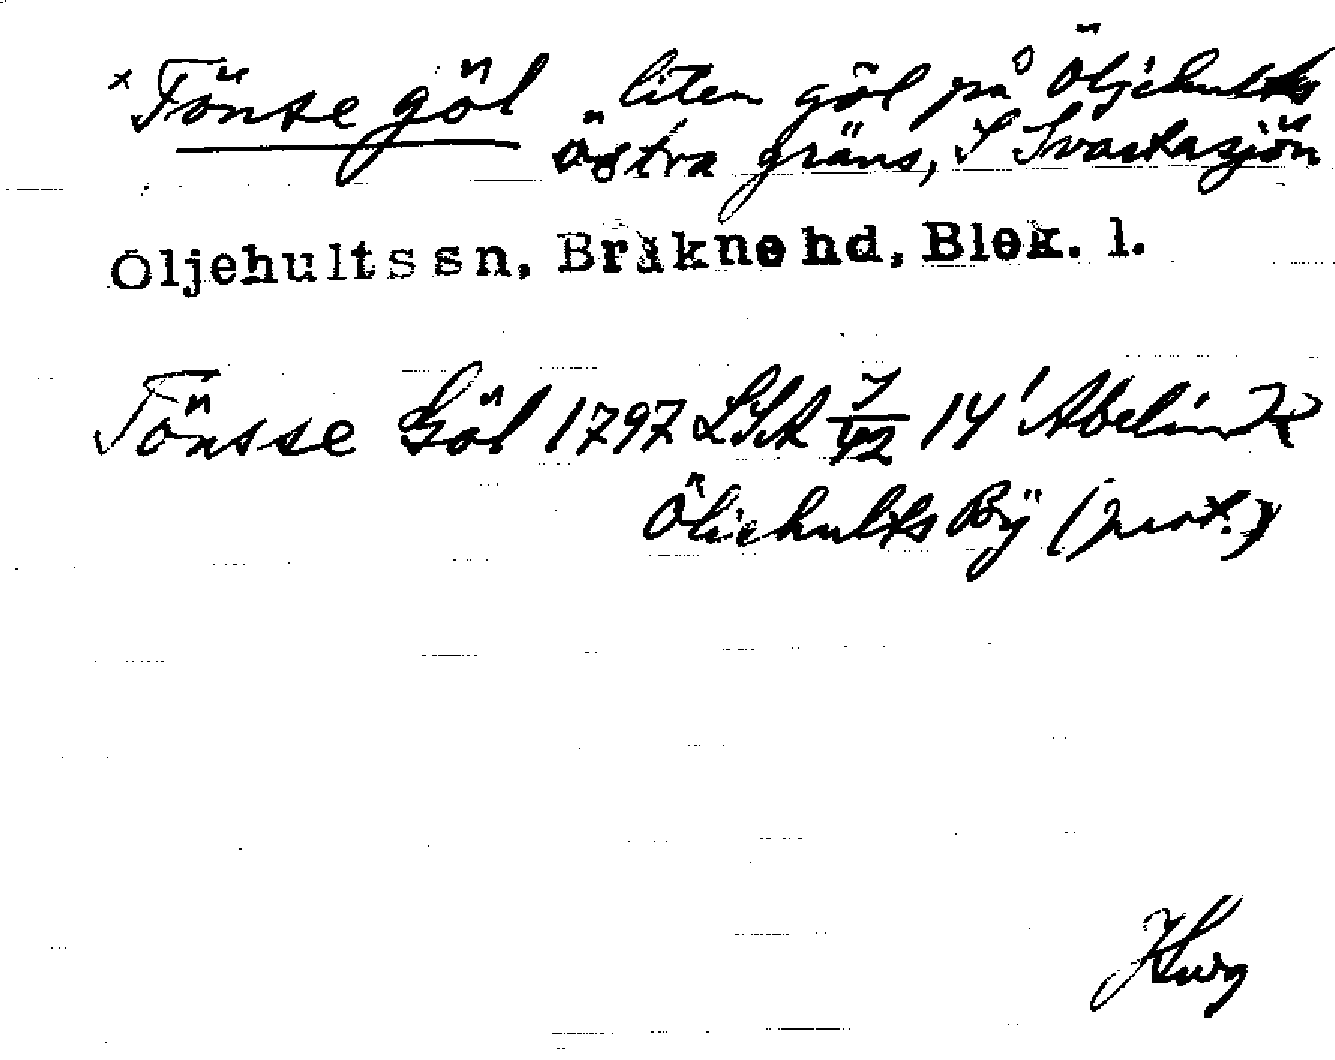 x Tönse göl liten göl på Öljehults
östra gräns, S Svartasjön
Öljehults sn, Bräkne hd, Blek. l.
Tönsse Göl 1797 LSA 14 Abelin K
Öliehults Bÿ (prot.)